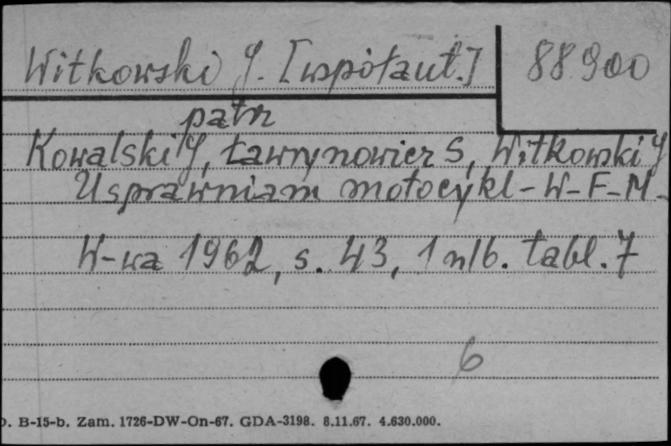 Witkowski J. [współaut.] 88900
patrz
Kowalski J, Ławrynowicz S, Witkowski J
Usprawniam motocykl - W-F-M -
W-wa 1962, s. 43, 1 nlb. tabl. 7
6
D. B-15-b. Zam. 1726-DW-On-67. GDA-3198. 8.11.67. 4.630.000.